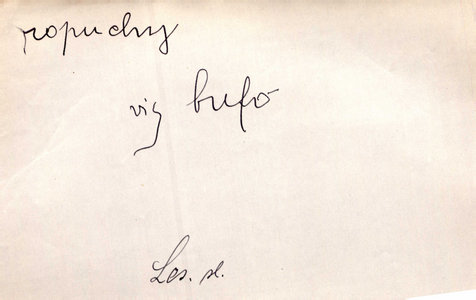 ropuchy
viz bufo
Les. sl.